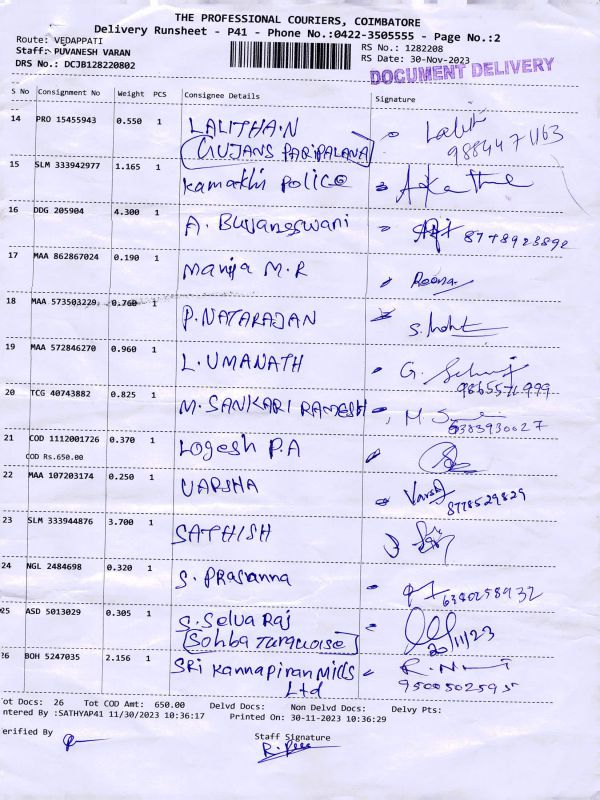 THE PROFESSIONAL COURIERS, COIMBATORE
Delivery Runsheet - P41 - Phone No.:0422-3505555 - Page No.:2
Route: VEDAPPATI
RS No.: 1282208
Staff: PUVANESH VARAN
RS Date: 30-Nov-2023
DRS No.: DCJB128220802
DOCUMENT DELIVERY
S No Consignment No Weight PCS Consignee Details Signature
14 PRO 15455943 0.550 1 LALITHA.N Lalith
9884471163
GUJANS PARIPALANA
15 SLM 333942977 1.165 1 Kamakhi Police
16 DDG 205904 4.300 1 A. Buvaneswani 8778923892
17 MAA 862867024 0.190 1 Manja M.R Reena
18 MAA 573503229 0.760 1 P. NATARAJAN S. Mohit
19 MAA 572846270 0.960 1 L. UMANATH G.
9865571999
20 TCG 40743882 0.825 1 M. SANKARI RAMESH M.
6383930027
21 COD 1112001726 0.370 1 Logesh P.A
COD Rs.650.00
22 MAA 107203174 0.250 1 VARSHA Varsha
8778529829
23 SLM 333944876 3.700 1 SATHISH
24 NGL 2484698 0.320 1 S. Prasanna
6380258932
25 ASD 5013029 0.305 1 S. Selva Raj
Sohba Turquoise 20/11/23
26 BOH 5247035 2.156 1 SRI Kannapiran Mills
Ltd 9500502595
Tot Docs: 26 Tot COD Amt: 650.00 Delvd Docs: Non Delvd Docs: Delvy Pts:
Entered By :SATHYAP41 11/30/2023 10:36:17 Printed On: 30-11-2023 10:36:29
Verified By Staff Signature